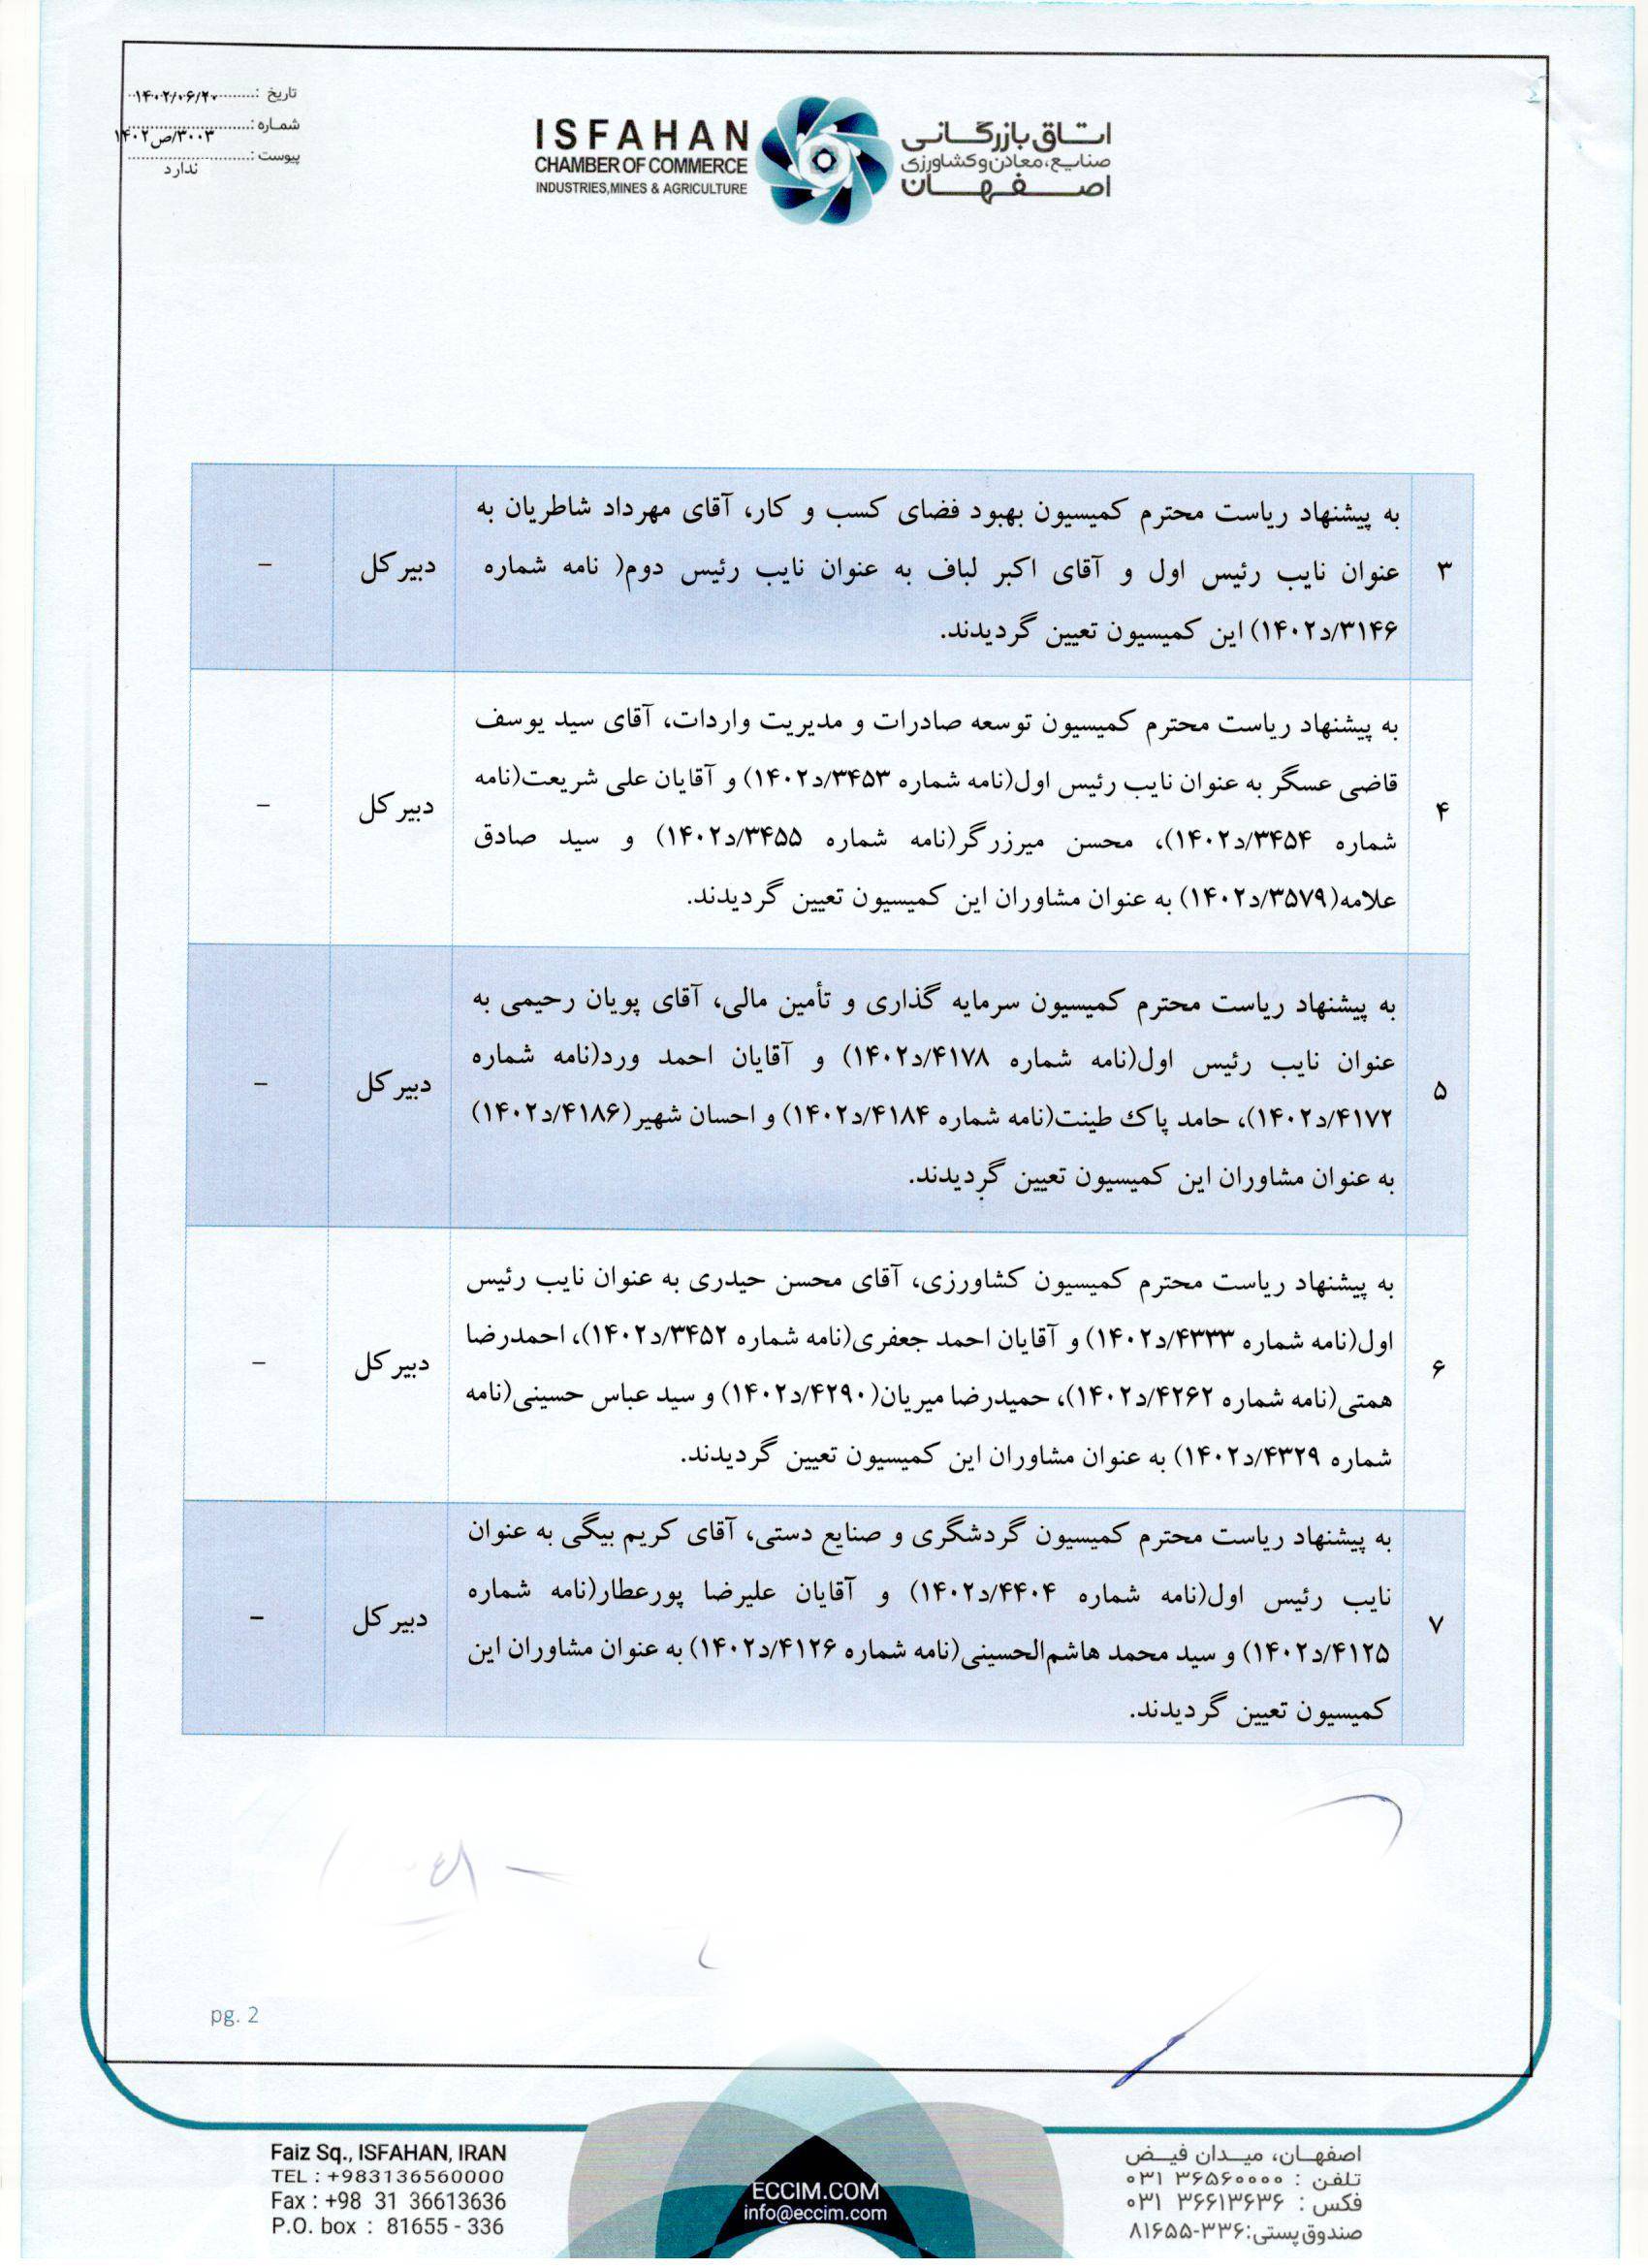 تاریخ :.......۱۴۰۲/۰۶/۲۰
شماره :.......۳۰۰۳/ص۱۴۰۲
پیوست :.......
ندارد
ISFAHAN
CHAMBER OF COMMERCE
INDUSTRIES,MINES & AGRICULTURE
اتاق بازرگانی
صنایع، معادن و کشاورزی
اصفهان
۳
به پیشنهاد ریاست محترم کمیسیون بهبود فضای کسب و کار، آقای مهرداد شاطریان به
عنوان نایب رئیس اول و آقای اکبر لباف به عنوان نایب رئیس دوم( نامه شماره
۳۱۴۶/د۱۴۰۲) این کمیسیون تعیین گردیدند.
دبیر کل
–
۴
به پیشنهاد ریاست محترم کمیسیون توسعه صادرات و مدیریت واردات، آقای سید یوسف
قاضی عسگر به عنوان نایب رئیس اول(نامه شماره ۳۴۵۳/د۱۴۰۲) و آقایان علی شریعت(نامه
شماره ۳۴۵۴/د۱۴۰۲)، محسن میرزرگر(نامه شماره ۳۴۵۵/د۱۴۰۲) و سید صادق
علامه(۳۵۷۹/د۱۴۰۲) به عنوان مشاوران این کمیسیون تعیین گردیدند.
دبیر کل
–
۵
به پیشنهاد ریاست محترم کمیسیون سرمایه گذاری و تأمین مالی، آقای پویان رحیمی به
عنوان نایب رئیس اول(نامه شماره ۴۱۷۸/د۱۴۰۲) و آقایان احمد ورد(نامه شماره
۴۱۷۲/د۱۴۰۲)، حامد پاک طینت(نامه شماره ۴۱۸۴/د۱۴۰۲) و احسان شهیر(۴۱۸۶/د۱۴۰۲)
به عنوان مشاوران این کمیسیون تعیین گردیدند.
دبیر کل
–
۶
به پیشنهاد ریاست محترم کمیسیون کشاورزی، آقای محسن حیدری به عنوان نایب رئیس
اول(نامه شماره ۴۳۳۳/د۱۴۰۲) و آقایان احمد جعفری(نامه شماره ۳۴۵۲/د۱۴۰۲)، احمدرضا
همتی(نامه شماره ۴۲۶۲/د۱۴۰۲)، حمیدرضا میریان(۴۲۹۰/د۱۴۰۲) و سید عباس حسینی(نامه
شماره ۴۳۲۹/د۱۴۰۲) به عنوان مشاوران این کمیسیون تعیین گردیدند.
دبیر کل
–
۷
به پیشنهاد ریاست محترم کمیسیون گردشگری و صنایع دستی، آقای کریم بیگی به عنوان
نایب رئیس اول(نامه شماره ۴۴۰۴/د۱۴۰۲) و آقایان علیرضا پورعطار(نامه شماره
۴۱۲۵/د۱۴۰۲) و سید محمد هاشم‌الحسینی(نامه شماره ۴۱۲۶/د۱۴۰۲) به عنوان مشاوران این
کمیسیون تعیین گردیدند.
دبیر کل
–
pg. 2
Faiz Sq., ISFAHAN, IRAN
TEL : +983136560000
Fax : +98 31 36613636
P.O. box : 81655 - 336
ECCIM.COM
info@eccim.com
اصفهـان، میـدان فیـض
تلفن : ۰۳۱ ۳۶۵۶۰۰۰۰
فکس : ۰۳۱ ۳۶۶۱۳۶۳۶
صندوق پستی:۳۳۶-۸۱۶۵۵